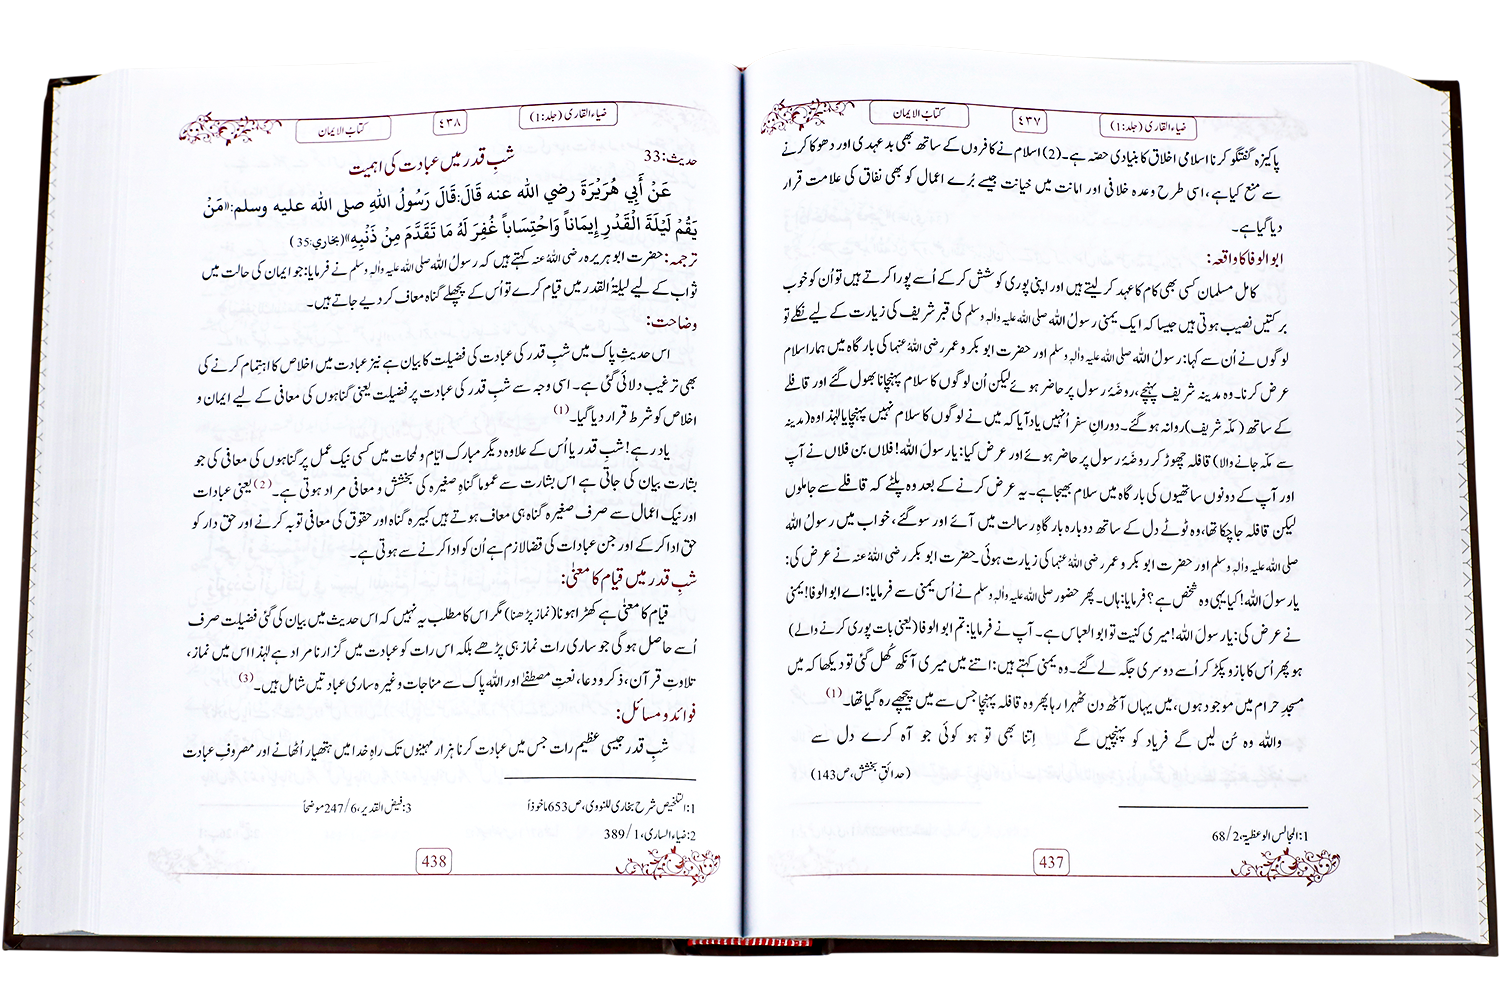 ضیاء القاری (جلد:1)
٤٣٧
کتابُ الایمان
پاکیزہ گفتگو کرنا اسلامی اخلاق کا بنیادی حصّہ ہے۔(2) اسلام نے کافروں کے ساتھ بھی بدعہدی اور دھوکا کرنے
سے منع کیا ہے، اسی طرح وعدہ خلافی اور امانت میں خیانت جیسے بُرے اعمال کو بھی نفاق کی علامت قرار
دیا گیا ہے۔
ابو الوفا کا واقعہ:
کامل مسلمان کسی بھی کام کا عہد کرلیتے ہیں اور اپنی پوری کوشش کرکے اُسے پورا کرتے ہیں تو اُن کو خوب
برکتیں نصیب ہوتی ہیں جیسا کہ ایک یمنی رسولُ اللہ صلی اللہ علیہ واٰلہٖ وسلم کی قبر شریف کی زیارت کے لیے نکلے تو
لوگوں نے اُن سے کہا: رسولُ اللہ صلی اللہ علیہ واٰلہٖ وسلم اور حضرت ابوبکر و عمر رضی اللہ عنہما کی بارگاہ میں ہمارا سلام
عرض کرنا۔ وہ مدینہ شریف پہنچے، روضۂ رسول پر حاضر ہوئے لیکن اُن لوگوں کا سلام پہنچانا بھول گئے اور قافلے
کے ساتھ (مکّہ شریف) روانہ ہوگئے۔ دورانِ سفر اُنہیں یاد آیا کہ میں نے لوگوں کا سلام نہیں پہنچایا لہٰذا وہ (مدینہ
سے مکّہ جانے والا) قافلہ چھوڑ کر روضۂ رسول پر حاضر ہوئے اور عرض کیا: یا رسولَ اللہ! فلاں بن فلاں نے آپ
اور آپ کے دونوں ساتھیوں کی بارگاہ میں سلام بھیجا ہے۔ یہ عرض کرنے کے بعد وہ پلٹے کہ قافلے سے جاملوں
لیکن قافلہ جاچکا تھا، وہ ٹوٹے دل کے ساتھ دوبارہ بارگاہِ رسالت میں آئے اور سوگئے، خواب میں رسولُ اللہ
صلی اللہ علیہ واٰلہٖ وسلم اور حضرت ابوبکر و عمر رضی اللہ عنہما کی زیارت ہوئی۔ حضرت ابوبکر رضی اللہ عنہ نے عرض کی:
یا رسولَ اللہ! کیا یہی وہ شخص ہے؟ فرمایا: ہاں۔ پھر حضور صلی اللہ علیہ واٰلہٖ وسلم نے اُس یمنی سے فرمایا: اے ابو الوفا! یمنی
نے عرض کی: یا رسولَ اللہ! میری کنیت تو ابو العباس ہے۔ آپ نے فرمایا: تم ابو الوفا (یعنی بات پوری کرنے والے)
ہو پھر اُس کا بازو پکڑ کر اُسے دوسری جگہ لے گئے۔ وہ یمنی کہتے ہیں: اتنے میں میری آنکھ کُھل گئی تو دیکھا کہ میں
مسجدِ حرام میں موجود ہوں، میں یہاں آٹھ دن ٹھہرا رہا پھر وہ قافلہ پہنچا جس سے میں پیچھے رہ گیا تھا۔(1)
واللہ وہ سُن لیں گے فریاد کو پہنچیں گے اِتنا بھی تو ہو کوئی جو آہ کرے دل سے
(حدائقِ بخشش،ص143)
1:المجالس الوعظیۃ،68/2
437
ضیاء القاری (جلد:1)
٤٣٨
کتابُ الایمان
حدیث:33 شبِ قدر میں عبادت کی اہمیت
عَنْ أَبِي هُرَيْرَةَ رضي الله عنه قَالَ:قَالَ رَسُولُ اللهِ صلى الله عليه وسلم:«مَنْ
يَقُمْ لَيْلَةَ الْقَدْرِ إِيمَاناً وَاحْتِسَاباً غُفِرَ لَهُ مَا تَقَدَّمَ مِنْ ذَنْبِهِ»(بخاري:35)
ترجمہ: حضرت ابوہریرہ رضی اللہ عنہ کہتے ہیں کہ رسولُ اللہ صلی اللہ علیہ واٰلہٖ وسلم نے فرمایا: جو ایمان کی حالت میں
ثواب کے لیے لیلۃُ القدر میں قیام کرے تو اُس کے پچھلے گناہ معاف کردیے جاتے ہیں۔
وضاحت:
اس حدیثِ پاک میں شبِ قدر کی عبادت کی فضیلت کا بیان ہے نیز عبادت میں اخلاص کا اہتمام کرنے کی
بھی ترغیب دلائی گئی ہے۔ اسی وجہ سے شبِ قدر کی عبادت پر فضیلت یعنی گناہوں کی معافی کے لیے ایمان و
اخلاص کو شرط قرار دیا گیا۔(1)
یاد رہے! شبِ قدر یا اُس کے علاوہ دیگر مبارک ایّام و لمحات میں کسی نیک عمل پر گناہوں کی معافی کی جو
بشارت بیان کی جاتی ہے اس بشارت سے عموماً گناہِ صغیرہ کی بخشش و معافی مراد ہوتی ہے۔(2) یعنی عبادات
اور نیک اعمال سے صرف صغیرہ گناہ ہی معاف ہوتے ہیں کبیرہ گناہ اور حقوق کی معافی توبہ کرنے اور حق دار کو
حق ادا کرکے اور جن عبادات کی قضا لازم ہے اُن کو ادا کرنے سے ہوتی ہے۔
شبِ قدر میں قیام کا معنٰی:
قیام کا معنٰی ہے کھڑا ہونا (نماز پڑھنا) مگر اس کا مطلب یہ نہیں کہ اس حدیث میں بیان کی گئی فضیلت صرف
اُسے حاصل ہوگی جو ساری رات نماز ہی پڑھے بلکہ اس رات کو عبادت میں گزارنا مراد ہے لہٰذا اس میں نماز،
تلاوتِ قرآن، ذکر و دعا، نعتِ مصطفٰے اور اللہ پاک سے مناجات وغیرہ ساری عبادتیں شامل ہیں۔(3)
فوائد و مسائل:
شبِ قدر جیسی عظیم رات جس میں عبادت کرنا ہزار مہینوں تک راہِ خدا میں ہتھیار اُٹھانے اور مصروفِ عبادت
1:التلخیص شرح بخاری للنووی،ص653ماخوذاً
3:فیض القدیر،247/6موضحاً
2:ضیاء الساری،389/1
438